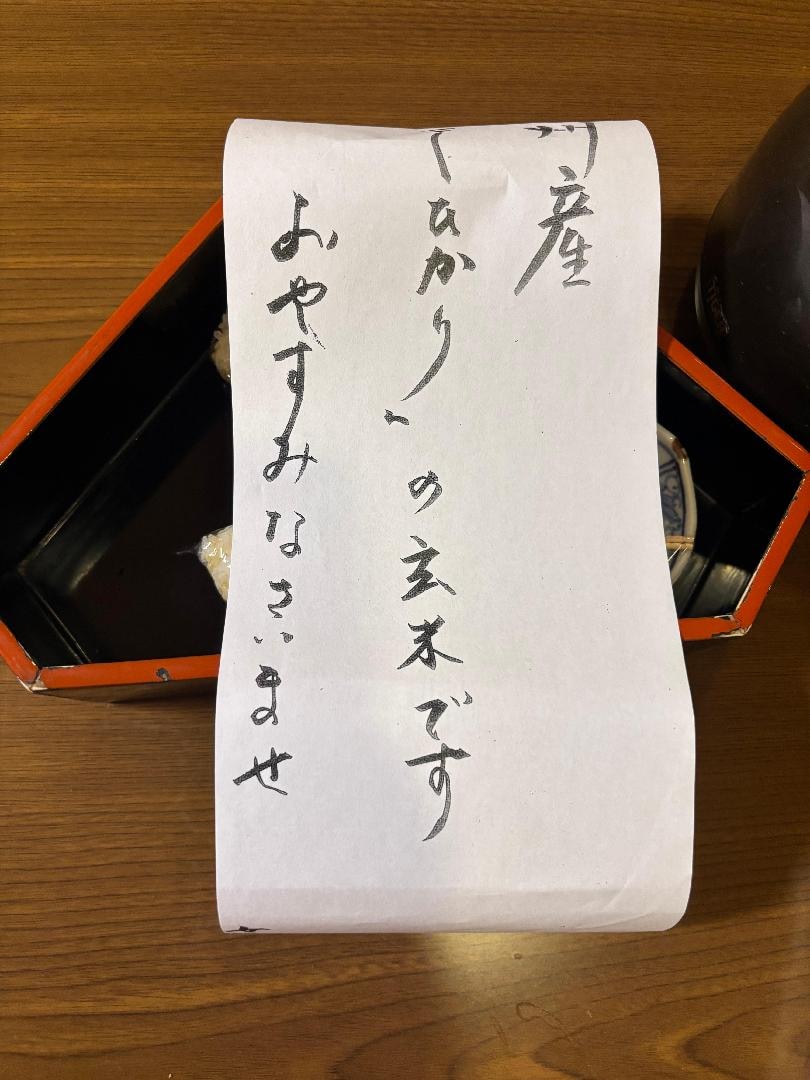 産
ひかり〟の玄米です
おやすみなさいませ